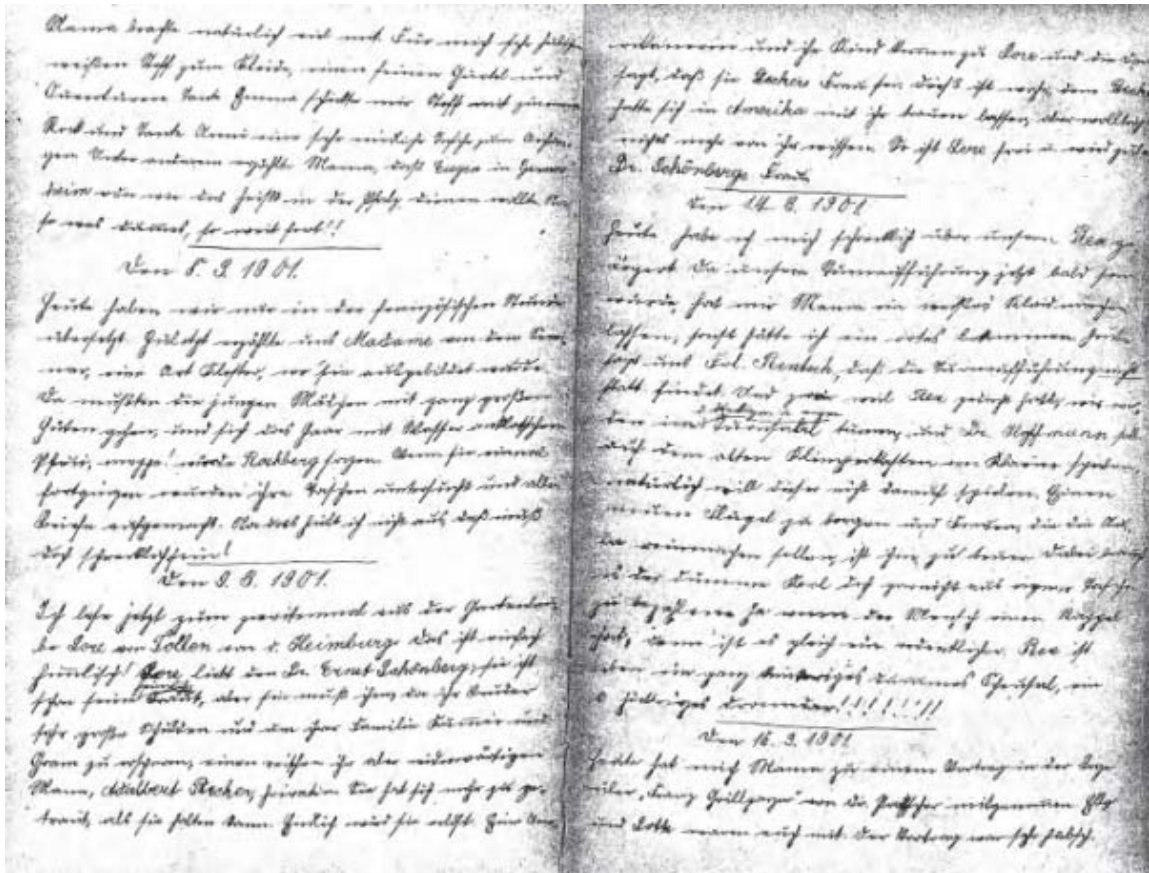 Mama brachte natürlich viel mit. Für mich sehr hübschen
weißen Stoff zum Kleide, einen feinen Gürtel und
Tante Emma schickte mir Stoff mit zu einem
Rock und Tante Anni eine sehr niedliche Tasche zum Anhän-
gen. Unter anderem erzählte Mama, daß
wie das heißt in der Pfalz dienen wollte
so was dummes, so weit fort!!
Den 5. 3. 1901.
Heute haben wir nur in der französischen Stunde
übersetzt. Zuletzt erzählte uns Madame von dem Semi-
nar, eine Art Kloster, wo sie ausgebildet wurde.
Da mußten die jungen Mädchen mit ganz großen
Hüten gehen, und sich das Haar mit Wasser
Pfui, würde Radberg sagen. Wenn sie einmal
fortgingen wurden ihre Taschen untersucht und alle
Briefe aufgemacht. Na das hielt ich nicht aus das muß
doch schrecklich sein!
Den 9. 3. 1901.
Ich lese jetzt zum zweitenmal aus der Gartenlau-
be Lore von Tollen von v. Heimburg. Das ist einfach
himmlisch! Lore, liebt den Dr. Ernst Schönberg, sie ist
schon seine Braut, aber sie muß ihn, da ihr Bruder
sehr große Schulden und um ihrer Familie Kummer und
Gram zu ersparen, einen reichen aber widerwärtigen
Mann, Adalbert Becher, heiraten. Sie hat sich nicht ge-
traut, als sie Endlich wird sie erlöst. Eine Ame-
rikanerin und ihr Kind kommen zu Lore und die
sagt, daß sie Bechers Frau sei. Dieß ist wahr, denn Becher
hatte sich in Amerika mit ihr trauen lassen, aber wollte
nichts mehr von ihr wissen. So ist Lore frei u. wird
Dr. Schönbergs Frau.
Den 14. 3. 1901
Heute habe ich mich schrecklich über unsern Rex ge-
ärgert. Da unsere Turnaufführung jetzt bald sein
würde, hat mir Mama ein weißes Kleid machen
lassen, sonst hätte ich ein rotes bekommen. Heute
sagt uns Frl. Rentsch, daß die Turnaufführung nicht
statt findet. Und zwar weil Rex gedacht hatte, wir wür-
den im Turnsaal turnen, und Dr. Hoffmann soll
auf dem alten Klimperkasten von Klavier spielen,
natürlich will dieser nicht darauf spielen. Einen
neuen Flügel zu borgen und Frauen, die die Au-
la reinmachen sollen, ist ihm zu teuer. Dabei braucht
es der dumme Kerl doch garnicht aus eigner Tasche
zu bezahlen. Ja wenn der Mensch einen Rappel
hat, dann ist es gleich ein ordentlicher. Rex ist
eben ein ganz dummes Scheusal, ein
Dromedar!!!!!!!!
Den 16. 3. 1901
Heute hat mich Mama zu einem Vortrag in der
über „Franz Grillparzer“ von Dr. mitgenommen.
und Lotte waren auch mit. Der Vortrag war sehr hübsch.